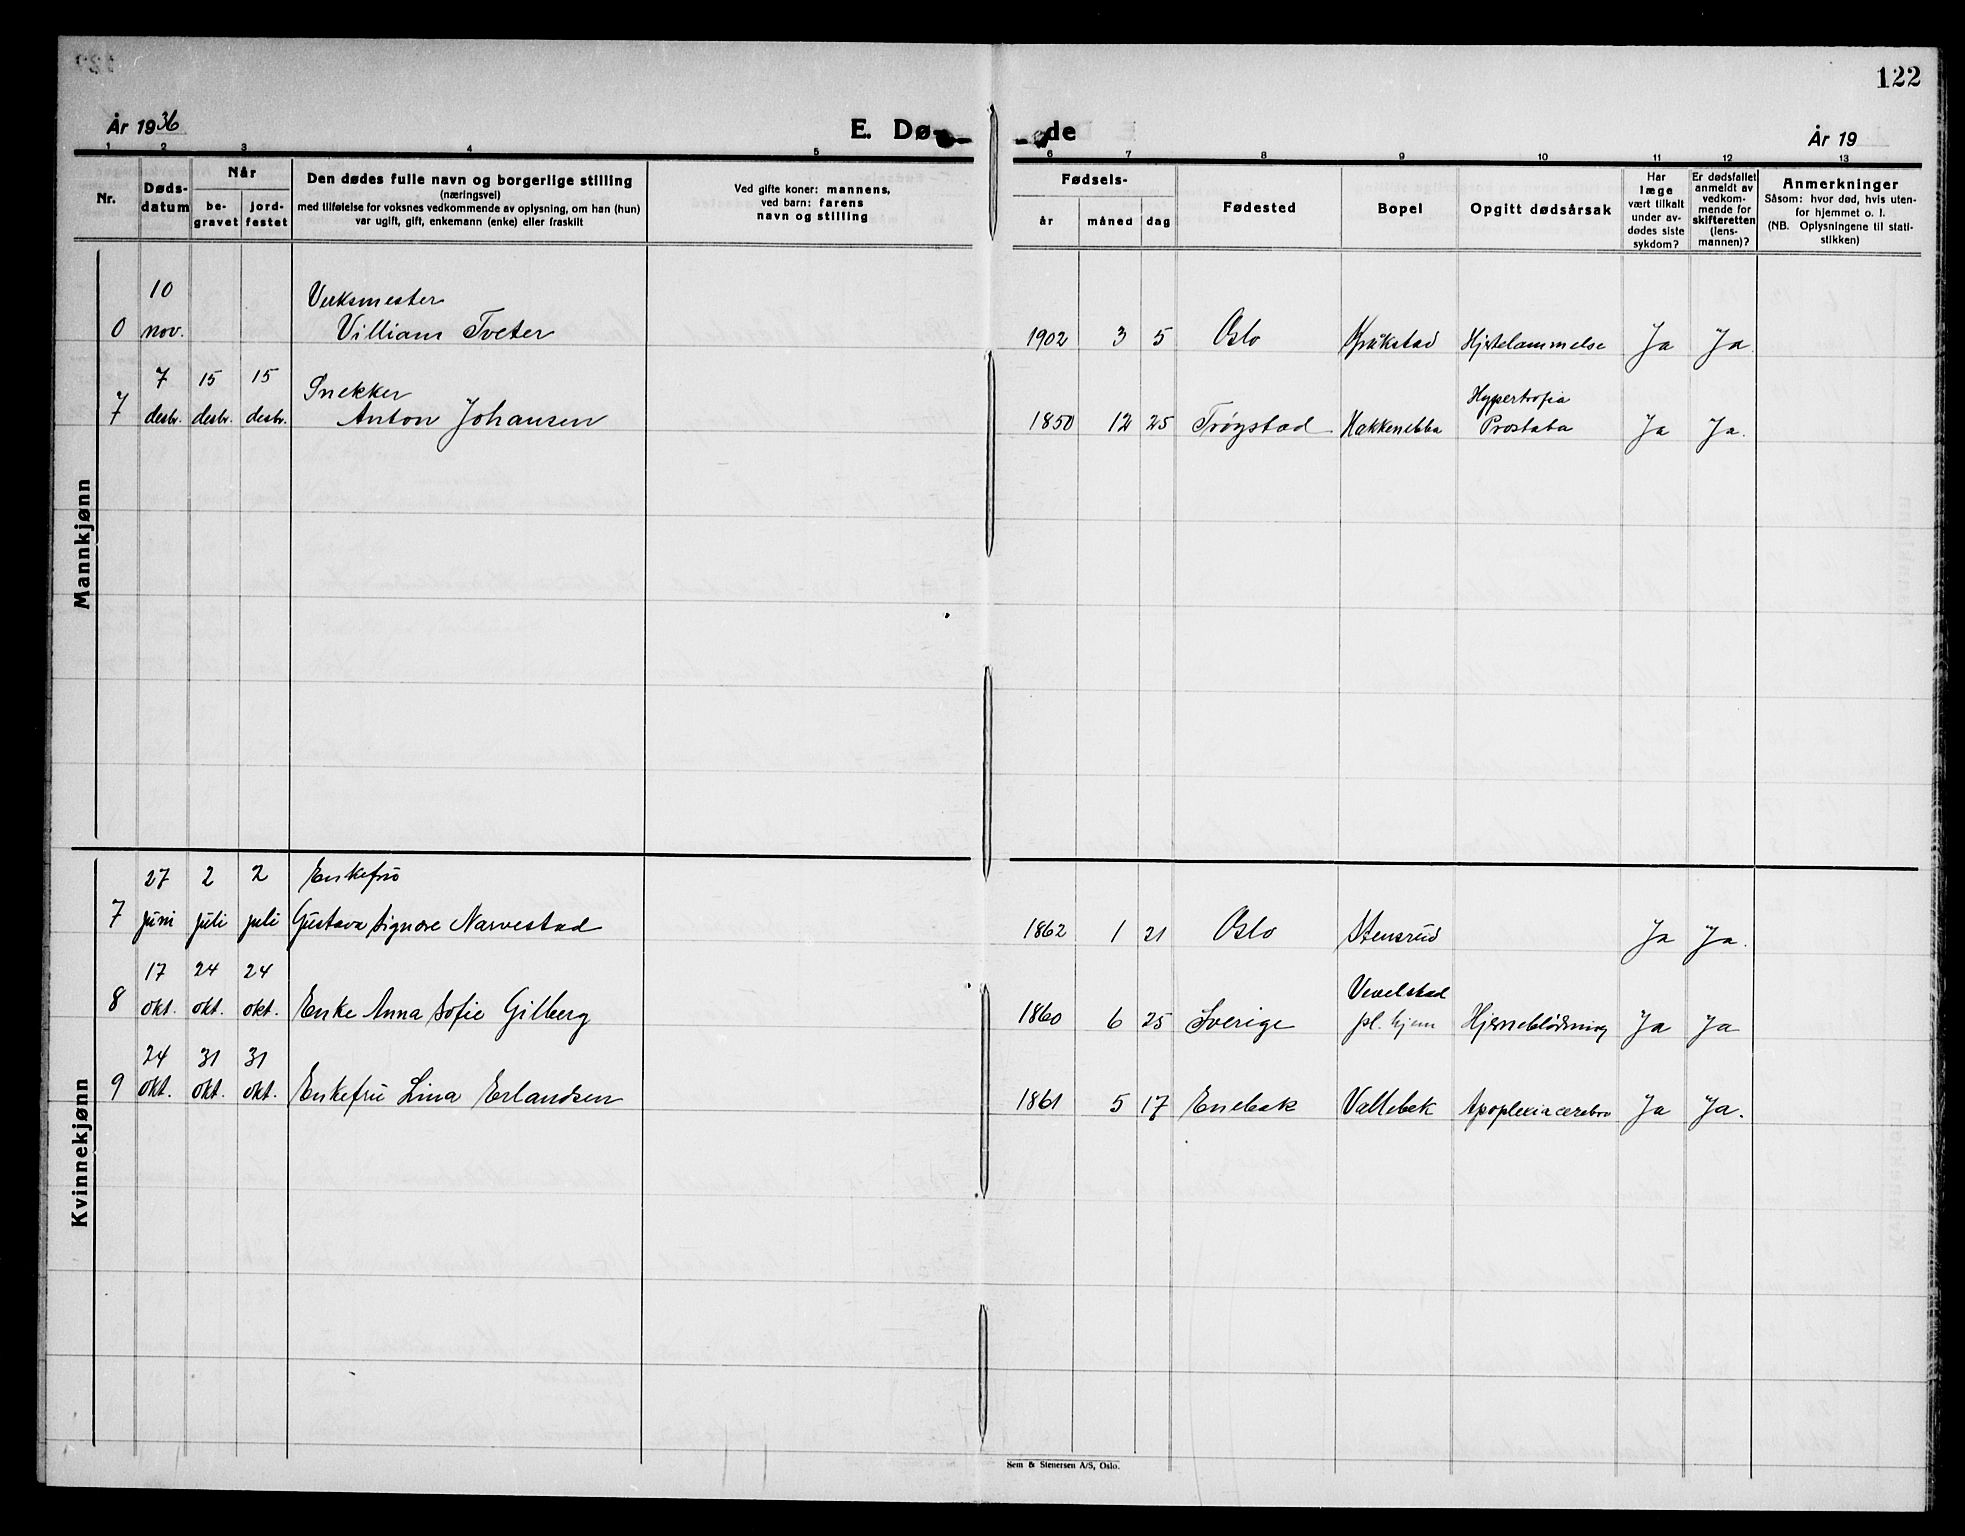 122
År 1936
E. Dø
de
År 19
1 2 3 4 5 6 7 8 9 10 11 12 13
Nr.
Døds-
datum
Når
be-
gravet
jord-
festet
Den dødes fulle navn og borgerlige stilling
(næringsvei)
med tilføielse for voksnes vedkommende av oplysning, om han (hun)
var ugift, gift, enkemann (enke) eller fraskilt
Ved gifte koner: mannens,
ved barn: farens
navn og stilling
Fødsels-
år
måned
dag
Fødested
Bopel
Opgitt dødsårsak
Har
læge
vært tilkalt
under av-
dødes siste
sykdom?
Er dødsfallet
anmeldt av
vedkom-
mende for
skifteretten
(lens-
mannen)?
Anmerkninger
Såsom: hvor død, hvis uten-
for hjemmet o. l.
(NB. Oplysningene til stati-
stikken)
Mannkjønn
10 Verksmester
0 nov. Villiam Tveter 1902 3 5 Oslo Kråkstad Hjertelammelse Ja Ja
7 15 15 Snekker Hypertrofia
7 desbr. desbr. desbr. Anton Johansen 1850 12 25 Trøgstad Hakkenebba Prostata Ja Ja.
Kvinnekjønn
27 2 2 Enkefru
7 juni juli juli Gustava Signore Narvestad 1862 1 21 Oslo Stensrud Ja Ja.
17 24 24 Vevelstad
8 okt. okt. okt. Enke Anna Sofie Gilberg 1860 6 25 Sverige pl. hjem Hjerneblödning Ja Ja
24 31 31
9 okt. okt. okt. Enkefru Lina Erlandsen 1861 5 17 Enebak Vallebek Apoplexia cerebri Ja Ja.
Sem & Stenersen A/S, Oslo.